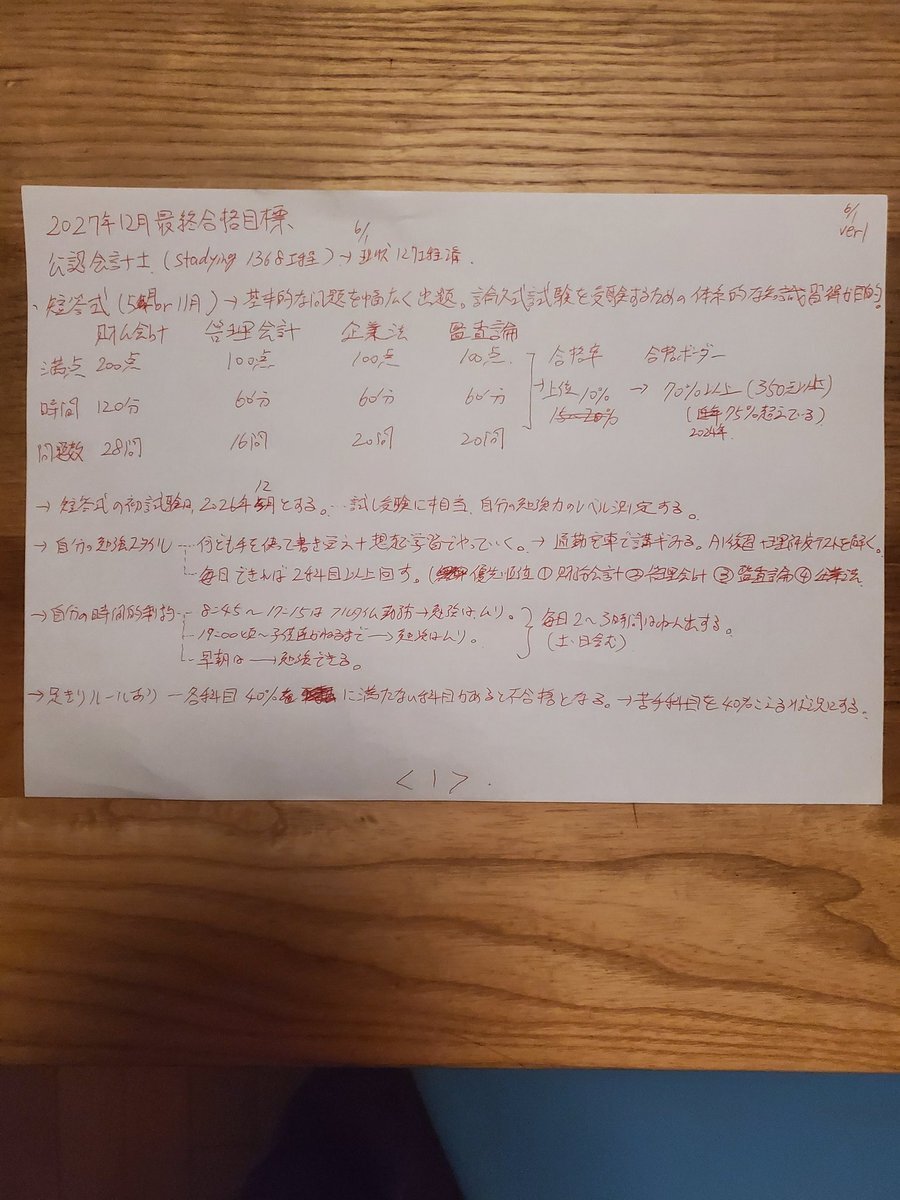 2027年12月最終合格目標
6/1 ver1
公認会計士 (studying 1368工程) → 6/1 現状 127工程済.
・短答式 (5月or 11月) → 基本的な問題を幅広く出題。論文式試験を受験するための体系的な知識習得が目的.
財ム会計 管理会計 企業法 監査論
満点 200点 100点 100点 100点 合格率 合格ボーダー
時間 120分 60分 60分 60分 → 上位10% → 70%以上 (350点以上)
15~20% (75%超えている)
2024年.
問題数 28問 16問 20問 20問
→ 短答式の初試験は、2026年12月とする。…試し受験に相当、自分の勉強力のレベル測定する。
→ 自分の勉強スタイル … 何ども手を使って書き + 想起学習でやっていく。→ 通勤電車で講ギみる。AI復習 解く。
毎日できれば2科目以上回す。( 優先順位 ① 財務会計 ② 管理会計 ③ 監査論 ④ 企業法.
→ 自分の時間的制約 8=45~17=15は フルタイム勤務 → 勉強はムリ。
19=00頃~子供達がねるまで → 勉強はムリ。 毎日2~3時間はねん出する。
早朝は → 勉強できる。 (土・日含む)
→ 足きりルールあり ー 各科目 40% に満たない科目があると不合格となる。→ 苦手科目を40%こえる状況にする.
<1>.